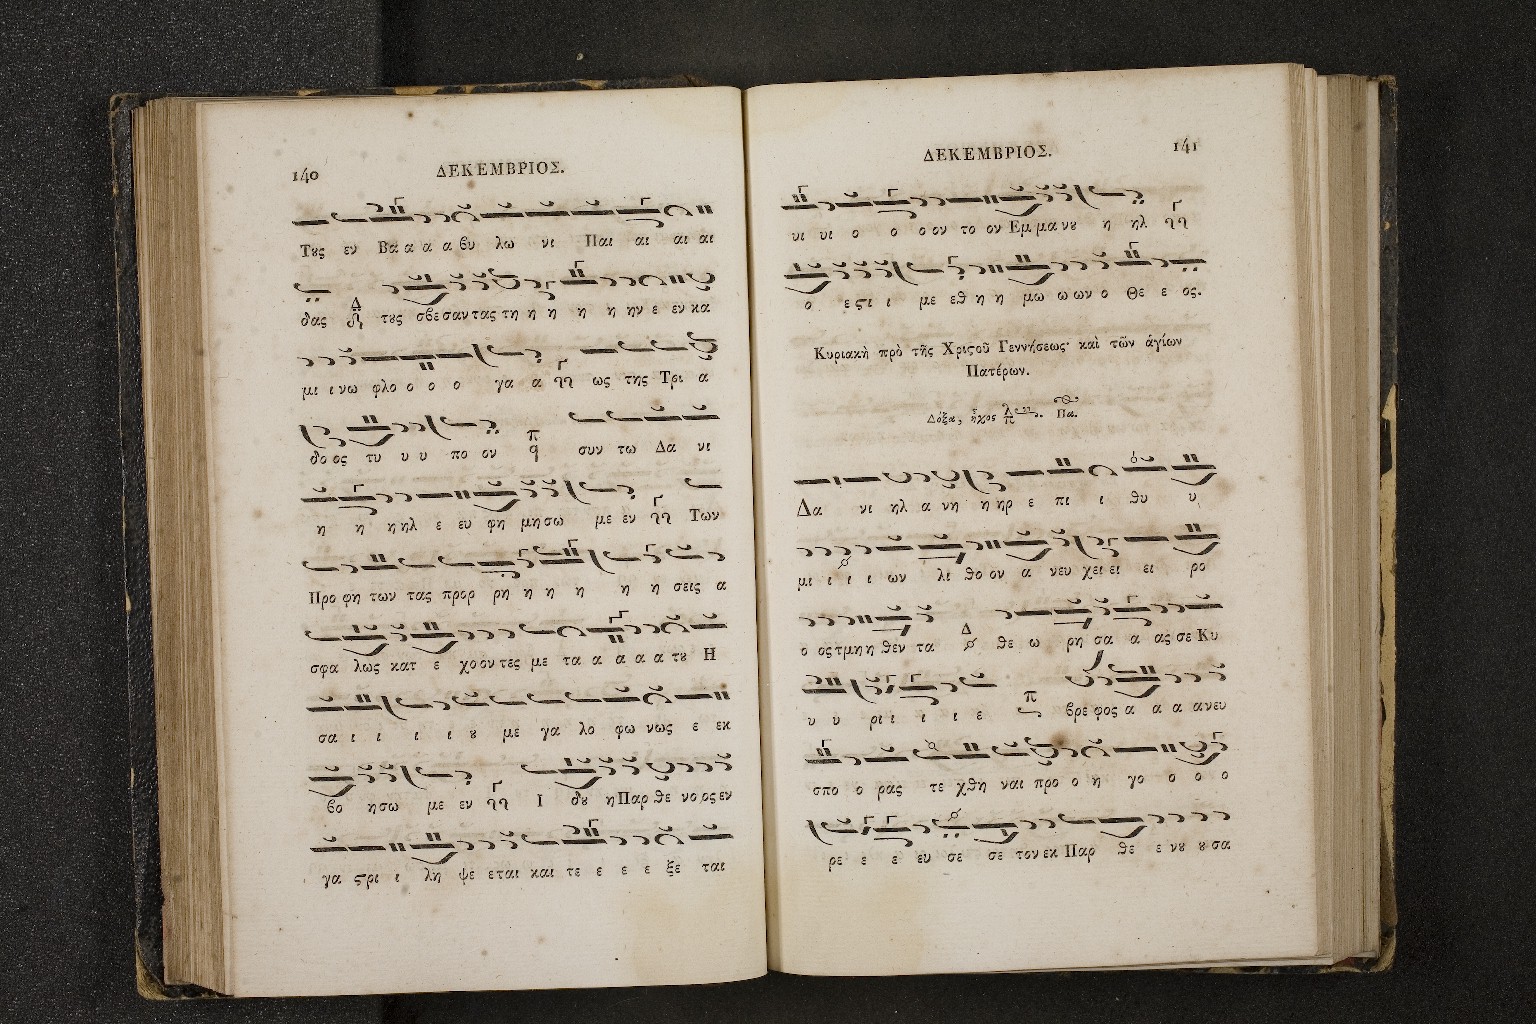 140
ΔΕΚΕΜΒΡΙΟΣ.
Τȣς εν Βα α α α ϐυ λω νι Παι αι αι αι
δας Δ τȣς σϐεσαντας τη η η η η ην ε εν κα
μι ι νω φλο ο ο ο γα α ως της Τρι α
δο ος τυ υ υ πο ον π q συν τω Δα νι
η η η ηλ ε ευ φη μη σω με εν Των
Προ φη των τας προρ ρη η η η η η σεις α
σφα λως κατ ε χο ον τες με τα α α α α τȣ Η
σα ι ι ι ι ȣ με γα λο φω νως ε εκ
ϐο η σω με εν Ι δȣ η Παρ θε νο ος εν
γα ϛρι ι λη ψε εται και τε ε ε ε ξε ται
ΔΕΚΕΜΒΡΙΟΣ.
141
υι υι ο ο ο ον το ον Εμ μα νȣ η ηλ
ο ε ϛι ι με εθ η η μω ω ων ο Θε ε ος.
Κυριακὴ πρὸ τῆς Χριϛοῦ Γεννήσεως· καὶ τῶν ἁγίων
Πατέρων.
Δόξα, ἦχος λ π Πα.
Δα νι ηλ α νη η ηρ ε πι ι θυ υ
μι ι ι ι ων λι θο ον α νευ χει ει ει ρο
ο ος τμη η θεν τα Δ θε ω ρη σα α ας σε Κυ
υ υ ρι ι ι ι ε π ϐρε φος α α α α νευ
σπο ο ρας τε χθη ναι προ ο η γο ο ο ο
ρε ε ε ευ σε σε τον εκ Παρ θε ε νȣ ȣ σα